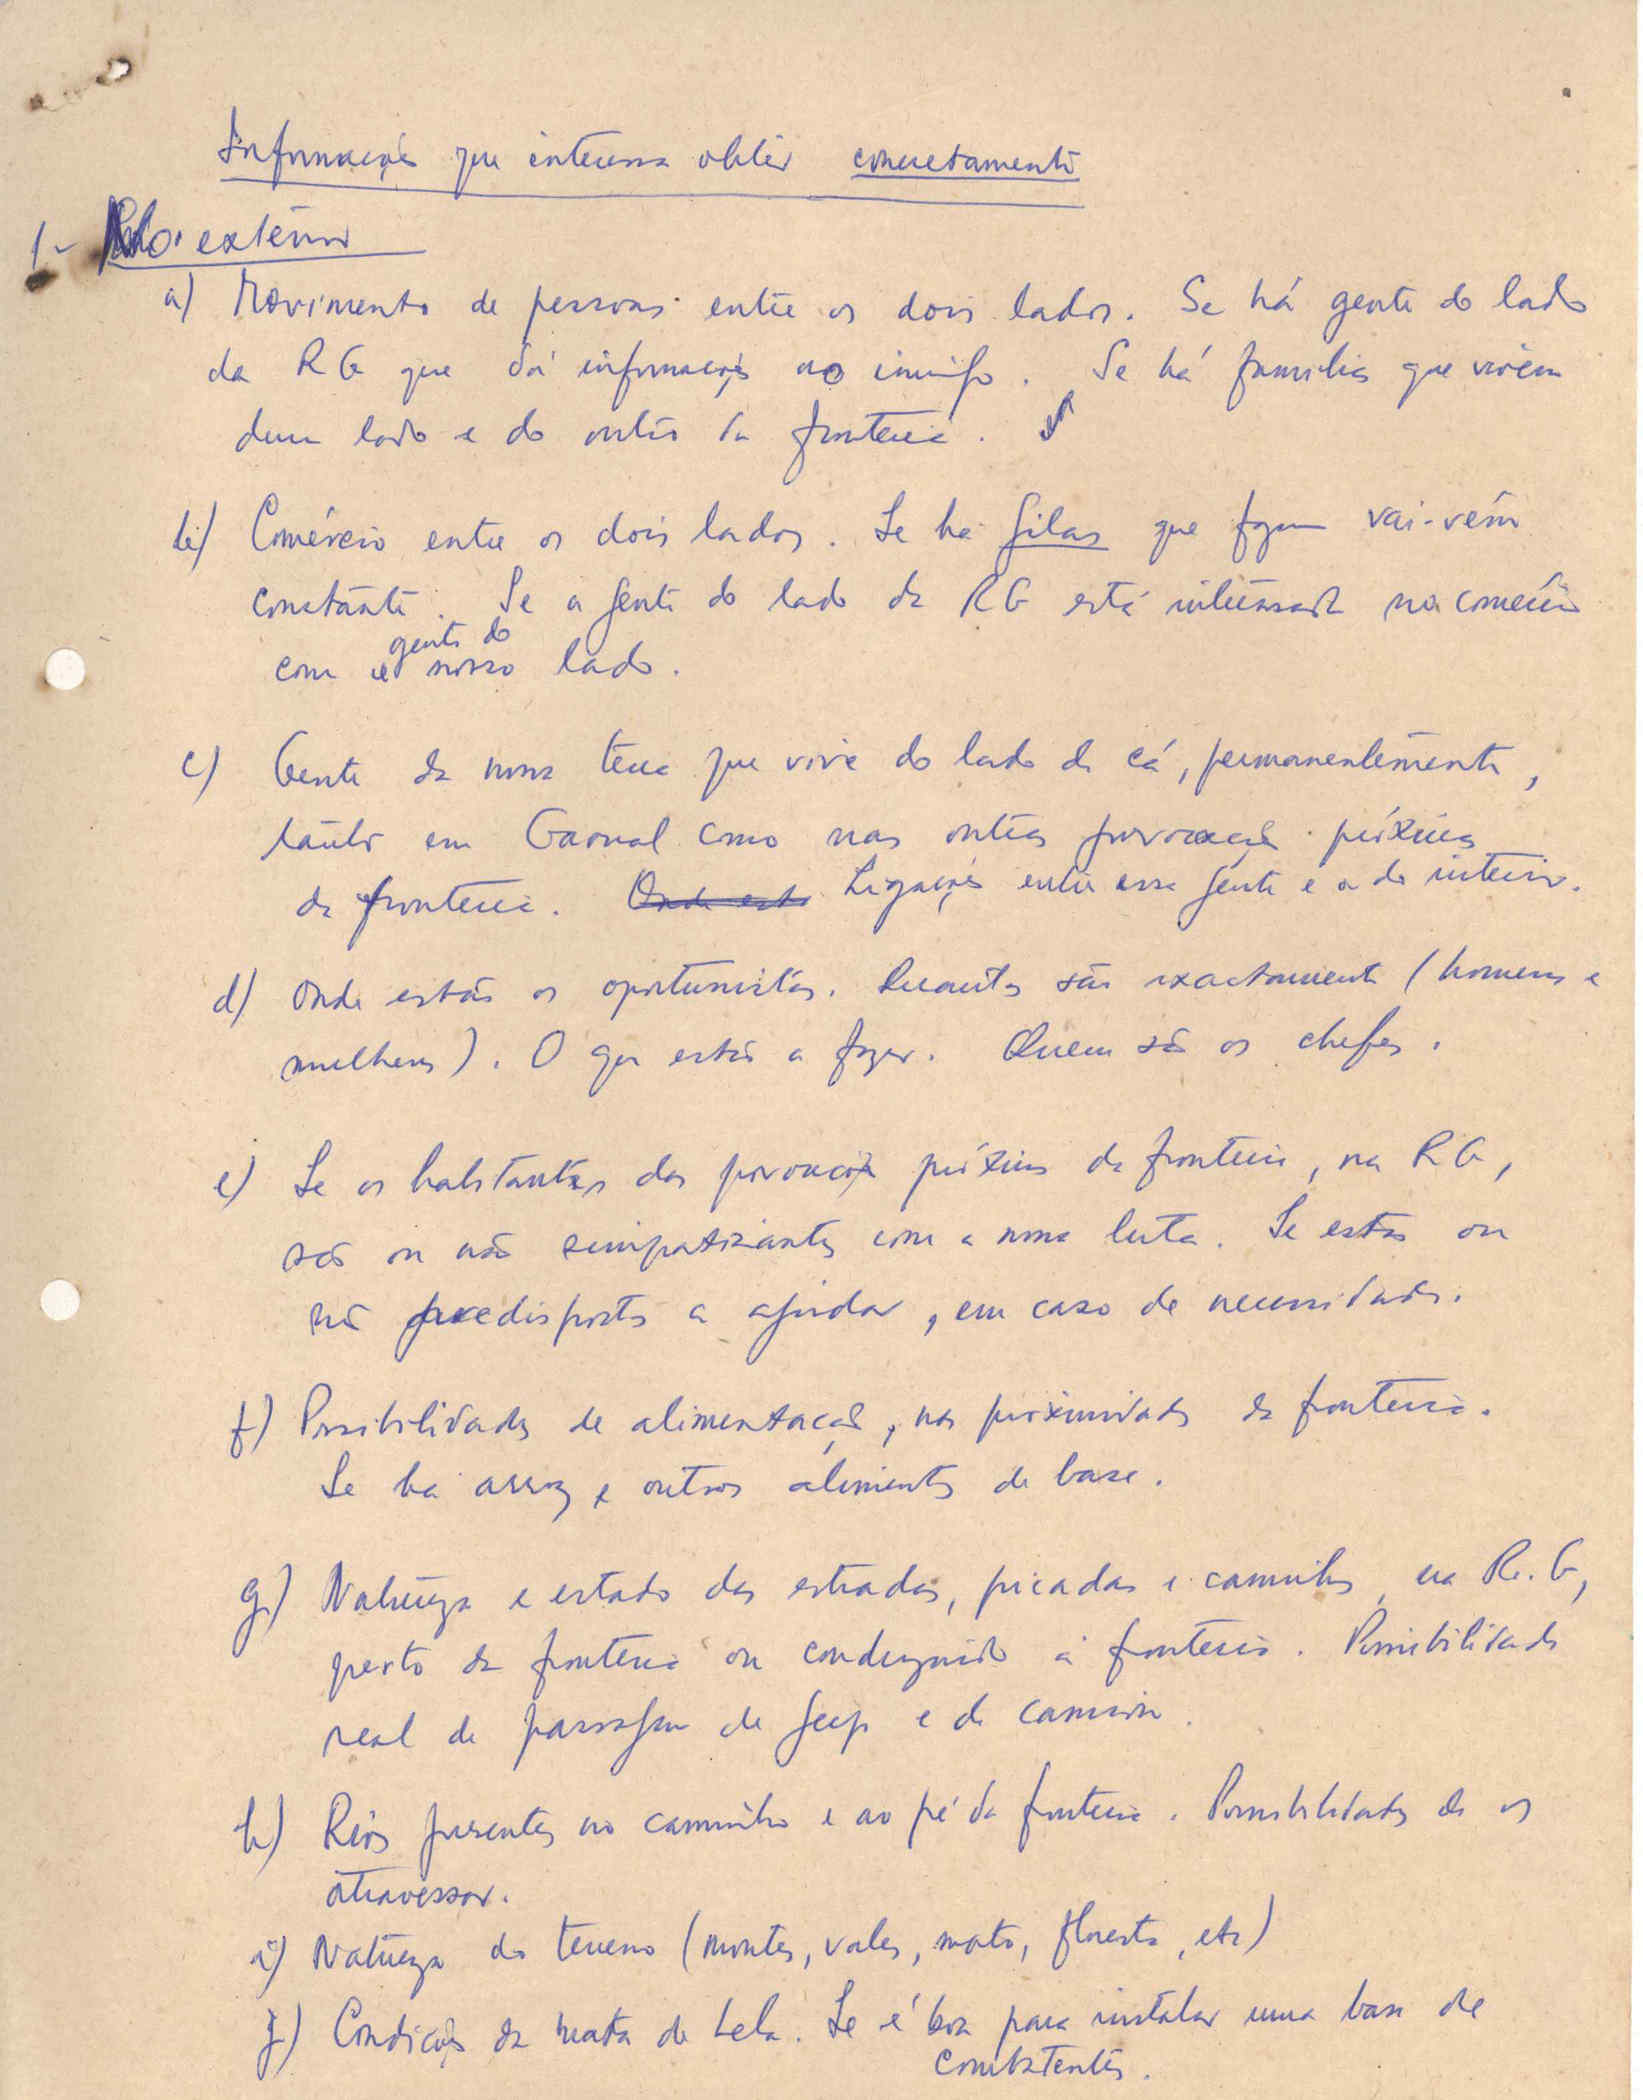 Informações que interessa obter concretamente
1- No exterior
a) Movimento de pessoas entre os dois lados. Se há gente do lado
da RG que dá informações ao inimigo. Se há famílias que vivem
dum lado e do outro da fronteira.
b) Comércio entre os dois lados. Se há gilas que fazem vai-vém
constante. Se a gente do lado da RG está interessada no comércio
com gente do nosso lado.
c) Gente da nossa terra que vive do lado de cá, permanentemente,
tanto em Gaoual como nas outras povoações próximas
da fronteira. Onde está Ligações entre essa gente e a do interior.
d) Onde estão os oportunistas. Quantos são exactamente (homens e
mulheres). O que estão a fazer. Quem são os chefes.
e) Se os habitantes das povoações próximas da fronteira, na RG,
são ou não simpatizantes com a nossa luta. Se estão ou
não predispostos a ajudar, em caso de necessidade.
f) Possibilidades de alimentação, nas proximidades da fronteira.
Se há arroz e outros alimentos de base.
g) Natureza e estado das estradas, picadas e caminhos, na R.G,
perto da fronteira ou conduzindo à fronteira. Possibilidade
real de passagem de jeep e de camion.
h) Rios presentes no caminho e ao pé da fronteira. Possibilidades de os
atravessar.
i) Natureza do terreno (montes, vales, mato, floresta, etc)
j) Condições da mata de Lela. Se é boa para instalar uma base de
combatentes.